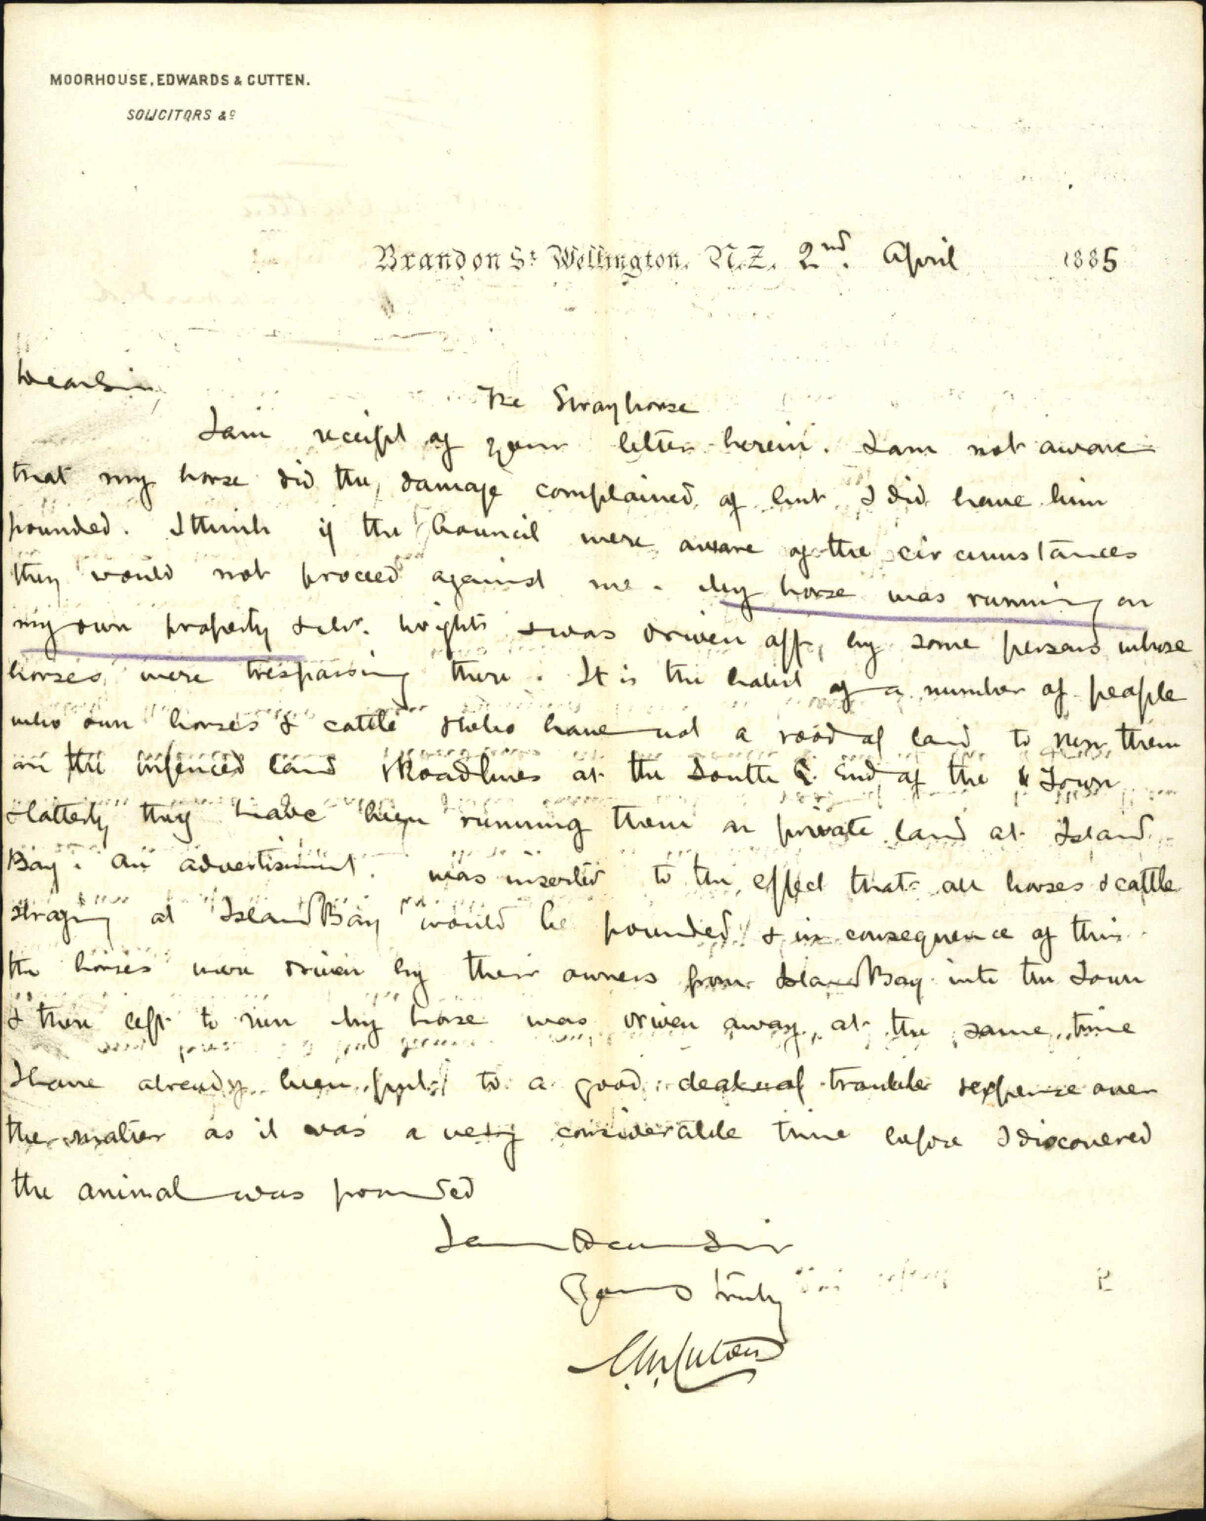 MOORHOUSE, EDWARDS & CUTTEN.
SOLICITORS &c
Brandon St Wellington. N.Z. 2nd. April 1885
Dear Sir,
Re Stray horse
I am receipt of your letter herein. I am not aware
that my horse did the damage complained of but I did have him
pounded. I think if the Council were aware of the circumstances
they would not proceed against me. My horse was running on
my own property & Mr. Wrights & was driven off, by some persons whose
horses were trespassing there. It is the habit of a number of people
who own horses & cattle & who have not a rood of land to run them
on the unfenced land & Roadlines at the South End of the Town
& latterly they have been running them on private land at Island
Bay. An advertisment was inserted to the effect that all horses & cattle
straying at Island Bay would be pounded & in consequence of this
the horses were driven by their owners from Island Bay into the Town
& there left to run My horse was driven away at the same time
I have already been put to a good deal of trouble & expense over
the matter as it was a very considerable time before I discovered
the animal was pounded
I am Dear Sir
Yours truly